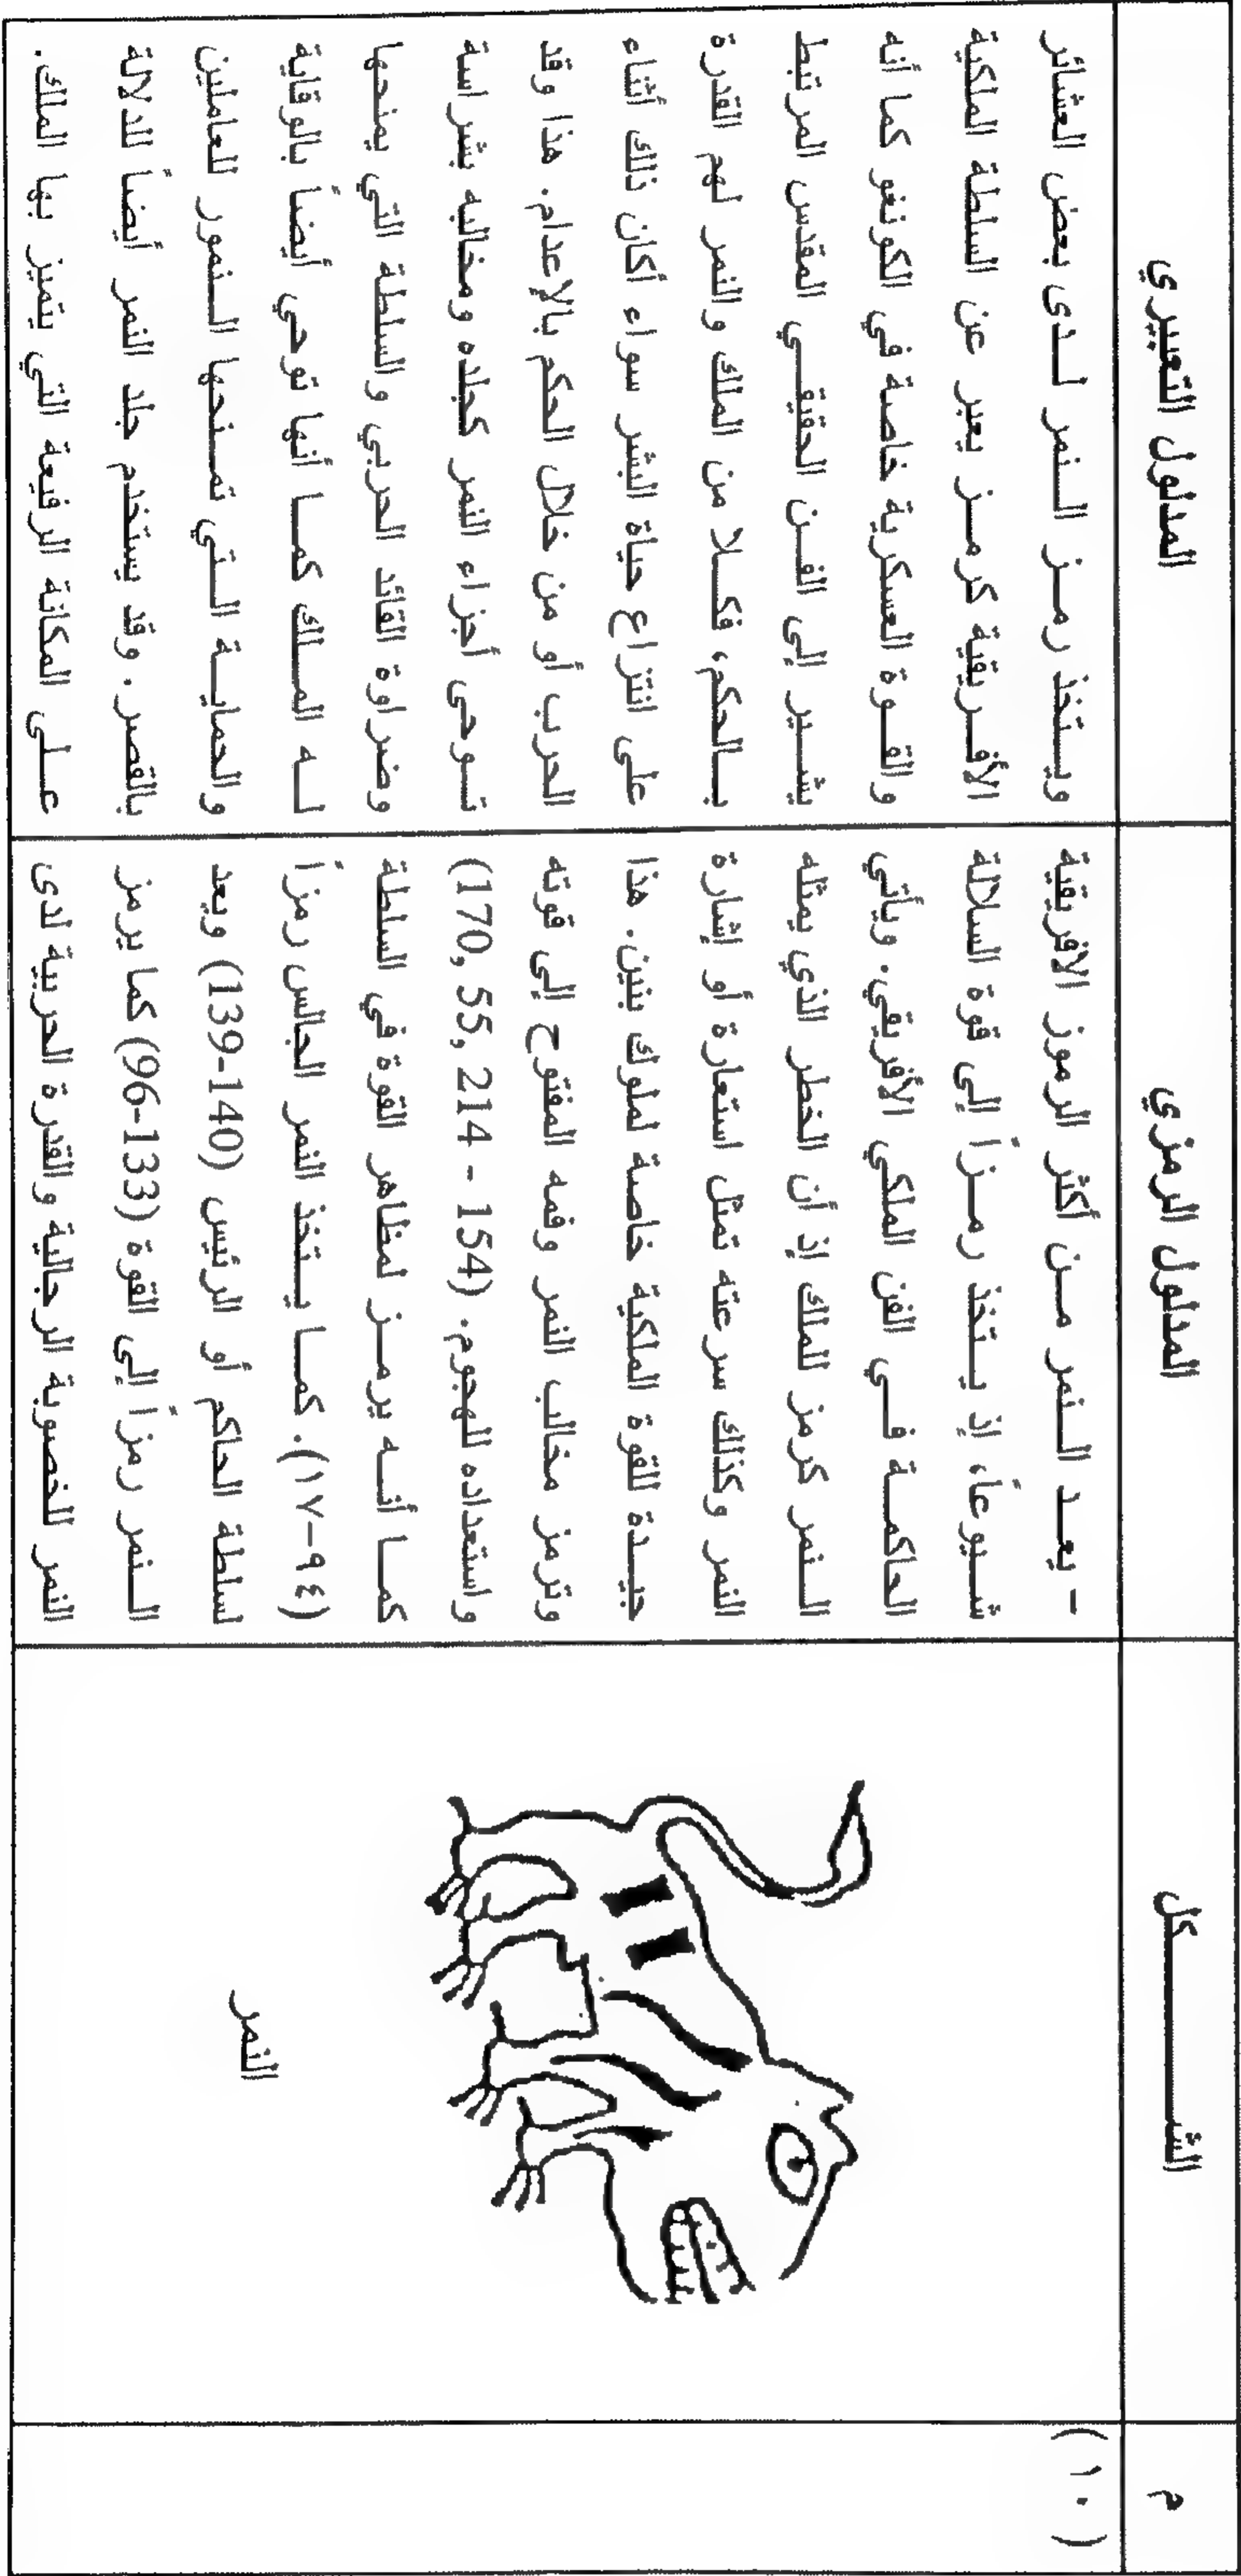 م
الشـــــكل
المدلول الرمزي
المدلول التعبيري
(١٠)
النمر
- يعـد الـنمر مـن أكثر الرموز الأفريقية
شـيوعاً، إذ يـتخذ رمـزاً إلى قوة السلالة
الحاكمـة فـي الفن الملكي الأفريقي. ويأتي
الـنمر كرمز للملك إذ أن الخطر الذي يمثله
النمر وكذلك سرعته تمثل استعارة أو إشارة
جيـدة للقوة الملكية خاصة لملوك بنين. هذا
وترمز مخالب النمر وفمه المفتوح إلى قوته
واستعداده للهجوم. (170, 55, 214 - 154)
كمـا أنـه يرمـز لمظاهر القوة في السلطة
(٩٤-١٧). كمـا يـتخذ النمر الجالس رمزاً
لسلطة الحاكم أو الرئيس (139-140) ويعد
الـنمر رمزاً إلى القوة (133-96) كما يرمز
النمر للخصوبة الرجالية والقدرة الحربية لدى
ويـتخذ رمـز الـنمر لـدى بعض العشائر
الأفـريقية كرمـز يعبر عن السلطة الملكية
والقـوة العسكرية خاصة في الكونغو كما أنه
يشـير إلى الفـن الحقيقـي المقدس المرتبط
بـالحكم، فكـلا من الملك والنمر لهم القدرة
على انتزاع حياة البشر سواء أكان ذلك أثناء
الحرب أو من خلال الحكم بالإعدام. هذا وقد
تـوحى أجزاء النمر كجلده ومخالبه بشراسة
وضراوة القائد الحربي والسلطة التي يمنحها
لـه المـلك كمـا أنها توحي أيضاً بالوقاية
والحمايـة الـتي تمـنحها الـنمور للعاملين
بالقصر. وقد يستخدم جلد النمر أيضاً للدلالة
عـلى المكانة الرفيعة التي يتميز بها الملك.